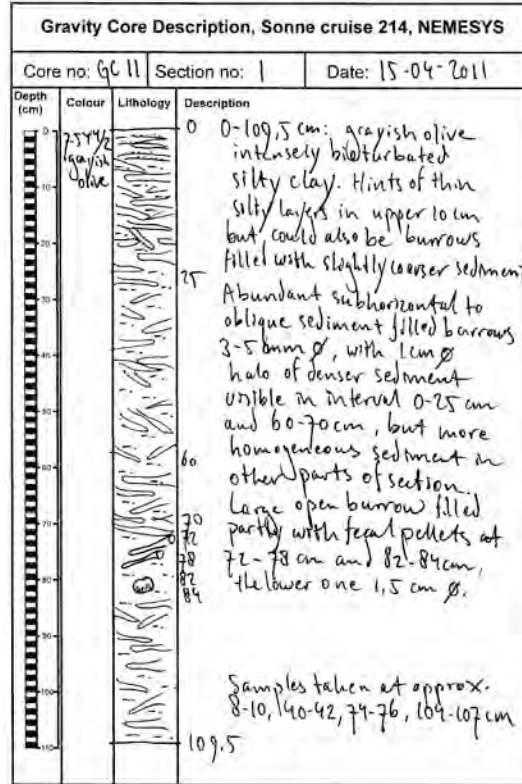 Gravity Core Description, Sonne cruise 214, NEMESYS
Core no: GC 11 Section no: 1 Date: 15-04-2011
Depth (cm) Colour Lithology Description
0
10
20
30
40
50
60
70
80
90
100
110
7.5Y4/2
grayish
olive
0
25
60
70
72
78
82
84
109.5
0-109,5 cm: grayish olive
intensely bioturbated
silty clay. Hints of thin
silty layers in upper 10 cm
but could also be burrows
filled with slightly coarser sediment
Abundant subhorizontal to
oblique sediment filled burrows
3-5 mm ø, with 1cm ø
halo of denser sediment
visible in interval 0-25 cm
and 60-70cm, but more
homogeneous sediment in
other parts of section.
Large open burrow filled
partly with fecal pellets at
72-78 cm and 82-84cm,
the lower one 1,5 cm ø.
Samples taken at approx.
8-10, 40-42, 74-76, 104-107cm